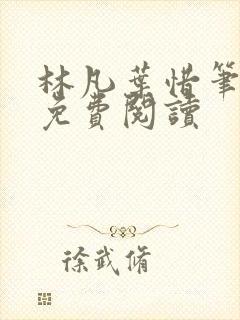 林凡葉惜筆
免費閱讀
徐武脩